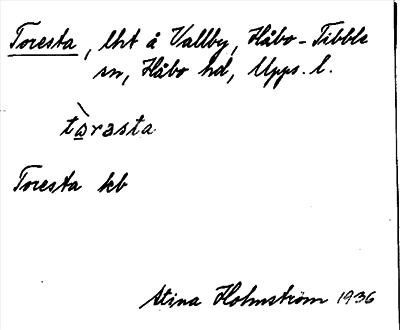 Toresta, lht å Vallby, Håbo-Tibble
sn, Håbo hd, Upps. l.
tàrasta
Toresta kb
Stina Holmström 1936